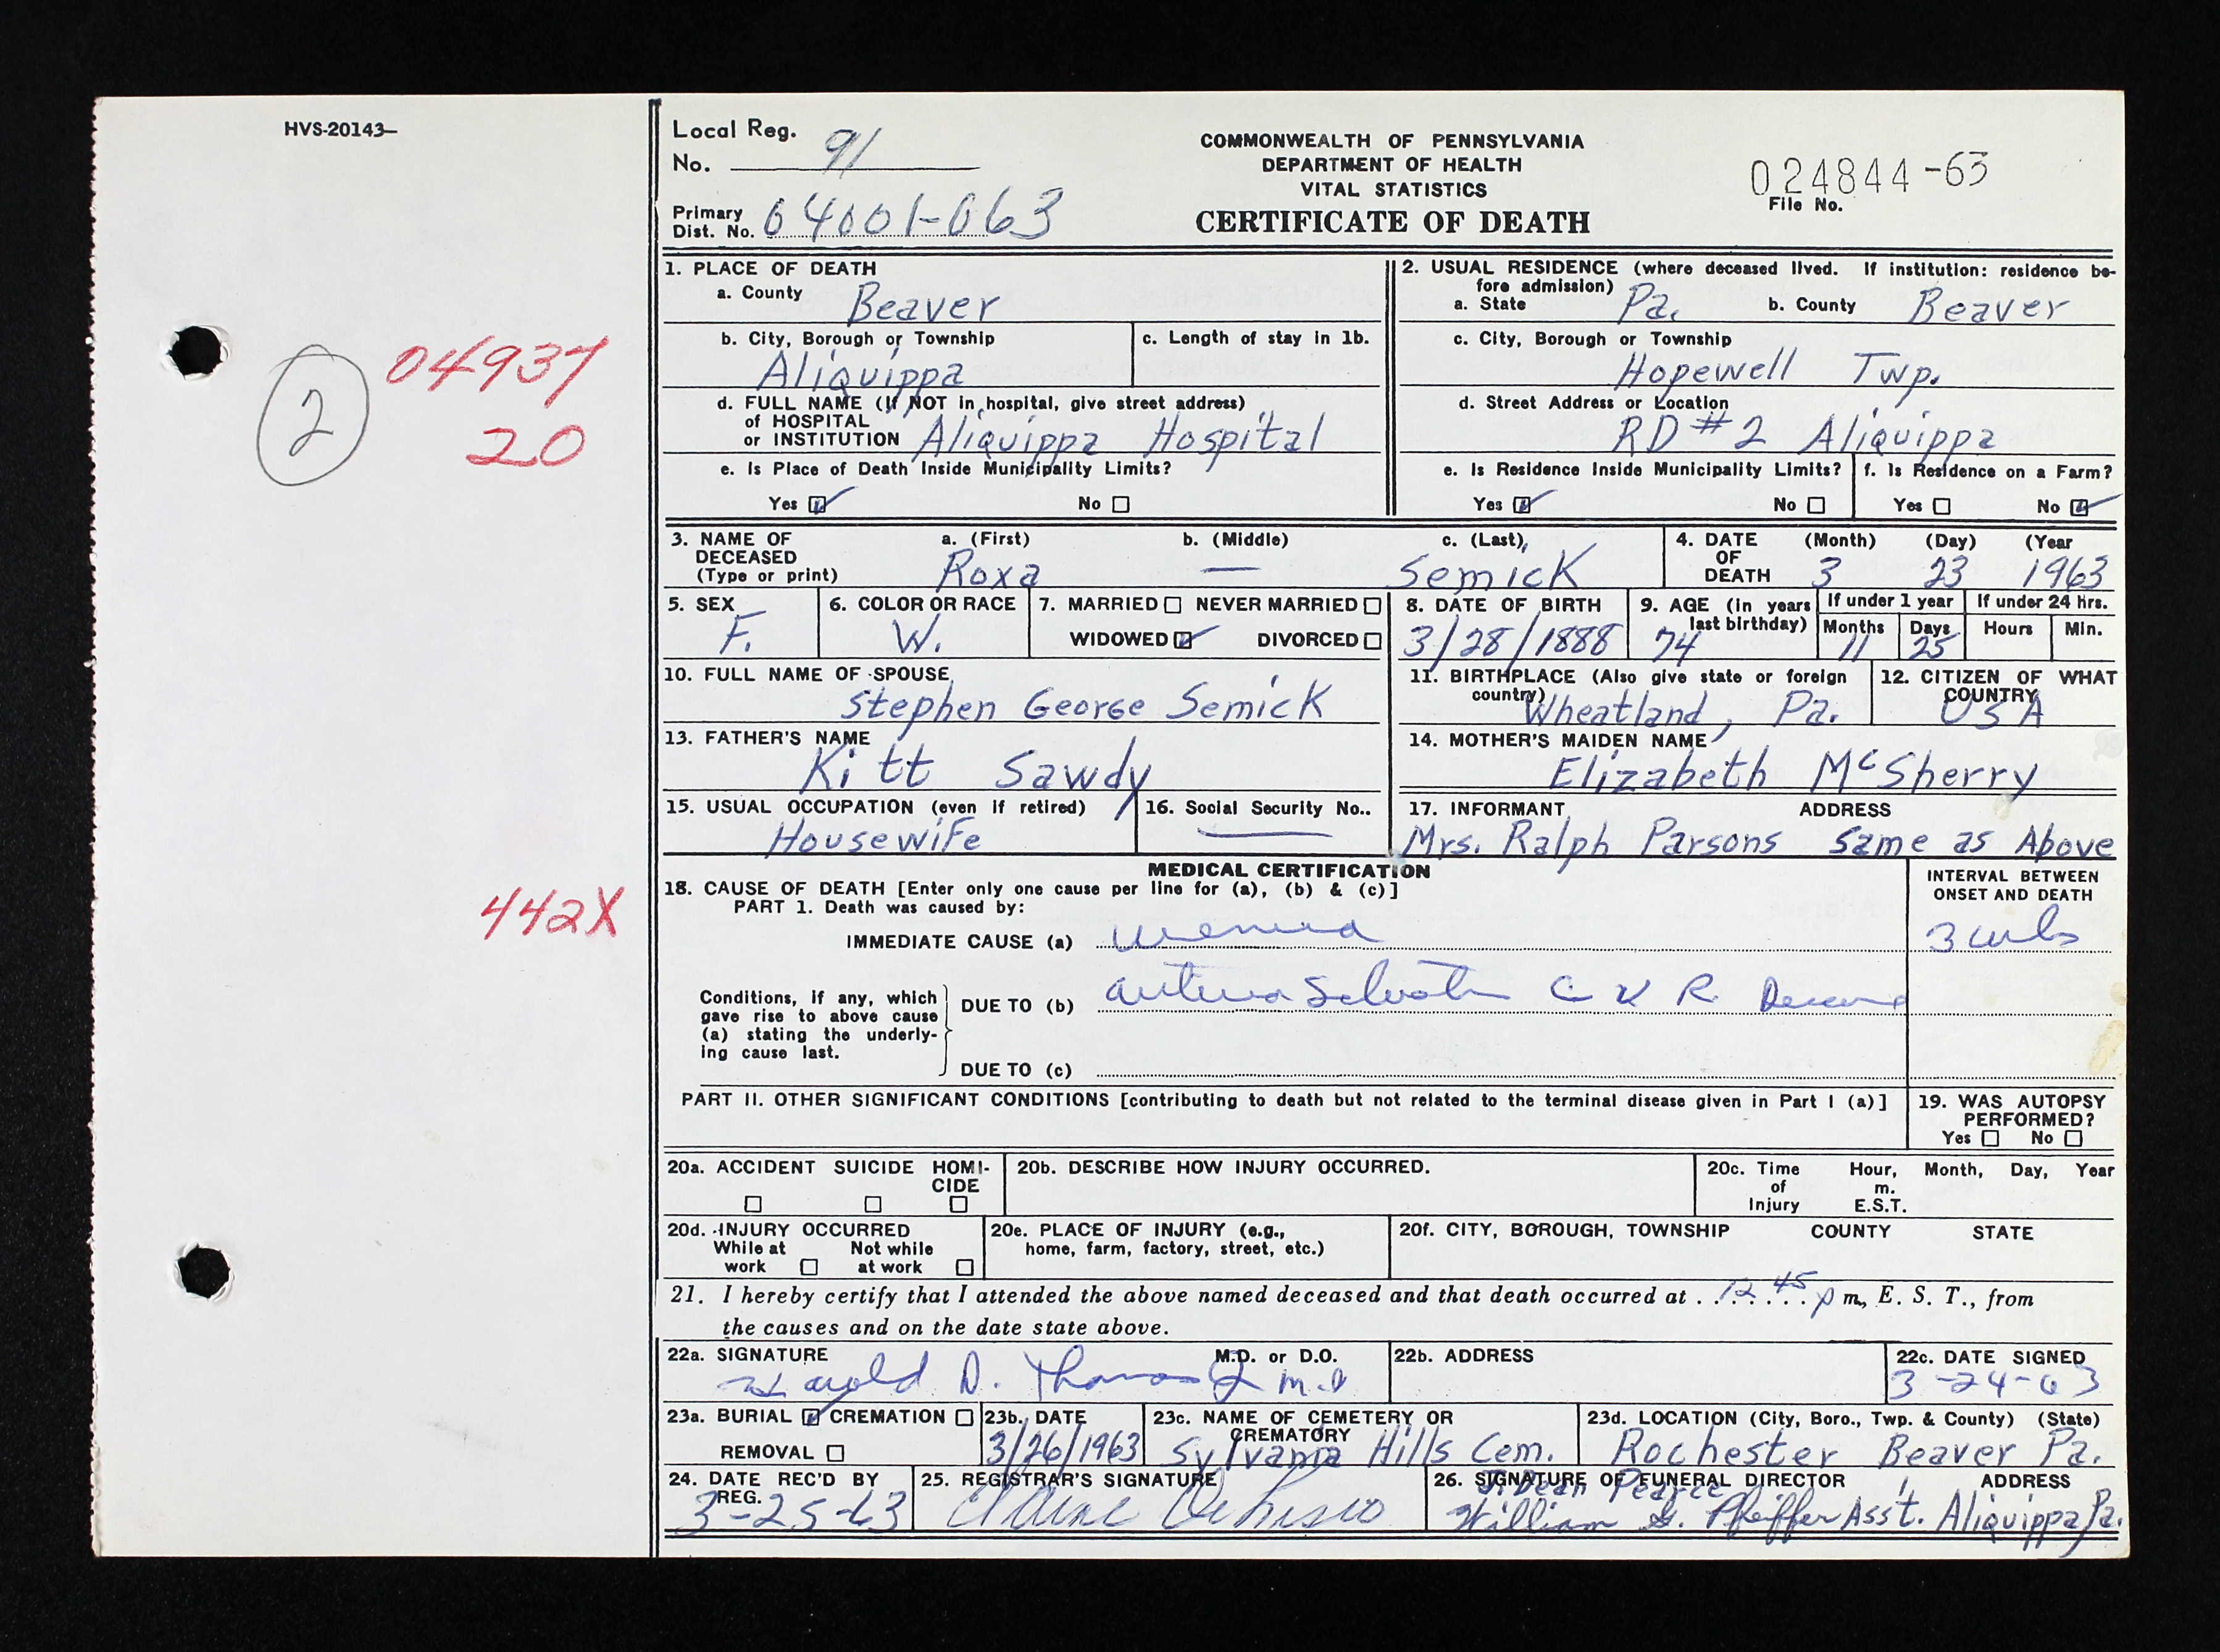 HVS-20143-
2
04937
20
442X
Local Reg.
No. 91
Primary
Dist. No. 04001-063
COMMONWEALTH OF PENNSYLVANIA
DEPARTMENT OF HEALTH
VITAL STATISTICS
CERTIFICATE OF DEATH
024844-63
File No.
1. PLACE OF DEATH
a. County Beaver
b. City, Borough or Township
Aliquippa
c. Length of stay in 1b.
d. FULL NAME (If NOT in hospital, give street address)
of HOSPITAL
or INSTITUTION Aliquippa Hospital
e. Is Place of Death Inside Municipality Limits?
Yes No
2. USUAL RESIDENCE (where deceased lived. If institution: residence be-
fore admission)
a. State Pa. b. County Beaver
c. City, Borough or Township
Hopewell Twp.
d. Street Address or Location
RD #2 Aliquippa
e. Is Residence Inside Municipality Limits?
Yes No
f. Is Residence on a Farm?
Yes No
3. NAME OF DECEASED
(Type or print)
a. (First) b. (Middle) c. (Last)
Roxa — Semick
4. DATE OF DEATH
(Month) (Day) (Year
3 23 1963
5. SEX
F.
6. COLOR OR RACE
W.
7. MARRIED NEVER MARRIED
WIDOWED DIVORCED
8. DATE OF BIRTH
3/28/1888
9. AGE (in years
last birthday)
74
If under 1 year
Months Days
11 25
If under 24 hrs.
Hours Min.
10. FULL NAME OF SPOUSE
Stephen George Semick
11. BIRTHPLACE (Also give state or foreign
country)
Wheatland, Pa.
12. CITIZEN OF WHAT
COUNTRY
USA
13. FATHER'S NAME
Kitt Sawdy
14. MOTHER'S MAIDEN NAME
Elizabeth McSherry
15. USUAL OCCUPATION (even if retired)
Housewife
16. Social Security No..
17. INFORMANT ADDRESS
Mrs. Ralph Parsons Same as Above
MEDICAL CERTIFICATION
18. CAUSE OF DEATH [Enter only one cause per line for (a), (b) & (c)]
PART 1. Death was caused by:
INTERVAL BETWEEN
ONSET AND DEATH
IMMEDIATE CAUSE (a) uremia 3 wks
Conditions, if any, which
gave rise to above cause
(a) stating the underly-
ing cause last.
DUE TO (b) C V R
DUE TO (c)
PART II. OTHER SIGNIFICANT CONDITIONS [contributing to death but not related to the terminal disease given in Part I (a)]
19. WAS AUTOPSY
PERFORMED?
Yes No
20a. ACCIDENT SUICIDE HOMI-
CIDE
20b. DESCRIBE HOW INJURY OCCURRED.
20c. Time Hour, Month, Day, Year
of m.
Injury E.S.T.
20d. INJURY OCCURRED
While at Not while
work at work
20e. PLACE OF INJURY (e.g.,
home, farm, factory, street, etc.)
20f. CITY, BOROUGH, TOWNSHIP COUNTY STATE
21. I hereby certify that I attended the above named deceased and that death occurred at 12 45 p m., E. S. T., from
the causes and on the date state above.
22a. SIGNATURE M.D. or D.O.
Harold D. Thomas M.D
22b. ADDRESS
22c. DATE SIGNED
3-24-63
23a. BURIAL CREMATION
REMOVAL
23b. DATE
3/26/1963
23c. NAME OF CEMETERY OR
CREMATORY
Sylvania Hills Cem.
23d. LOCATION (City, Boro., Twp. & County) (State)
Rochester Beaver Pa.
24. DATE REC'D BY
REG.
3-25-63
25. REGISTRAR'S SIGNATURE
26. SIGNATURE OF FUNERAL DIRECTOR ADDRESS
J. Dean Pearce
William G. Pfeiffer Ass't. Aliquippa Pa.